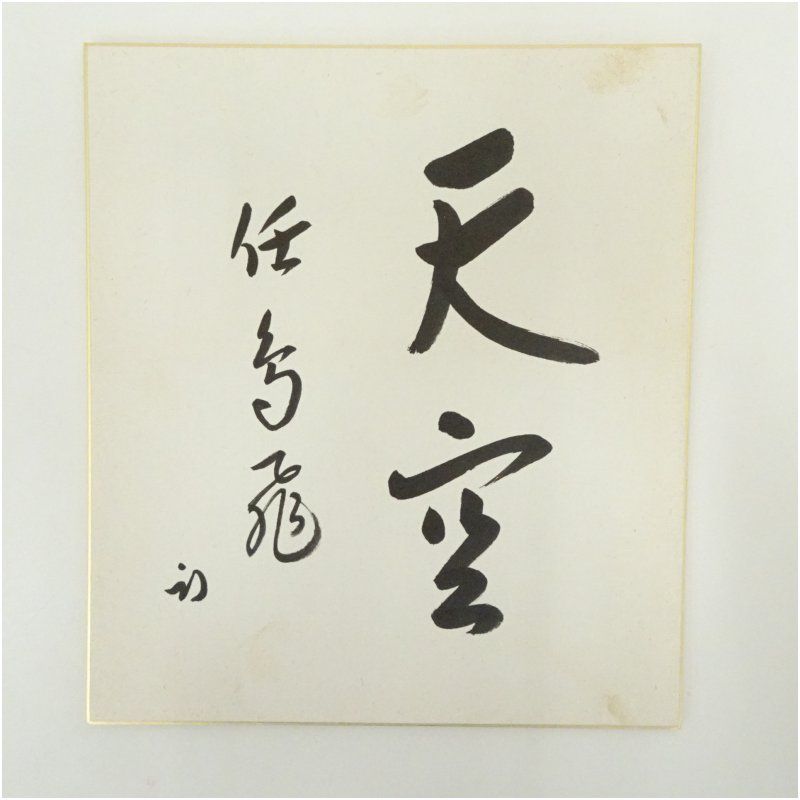 天空
任鳥飛